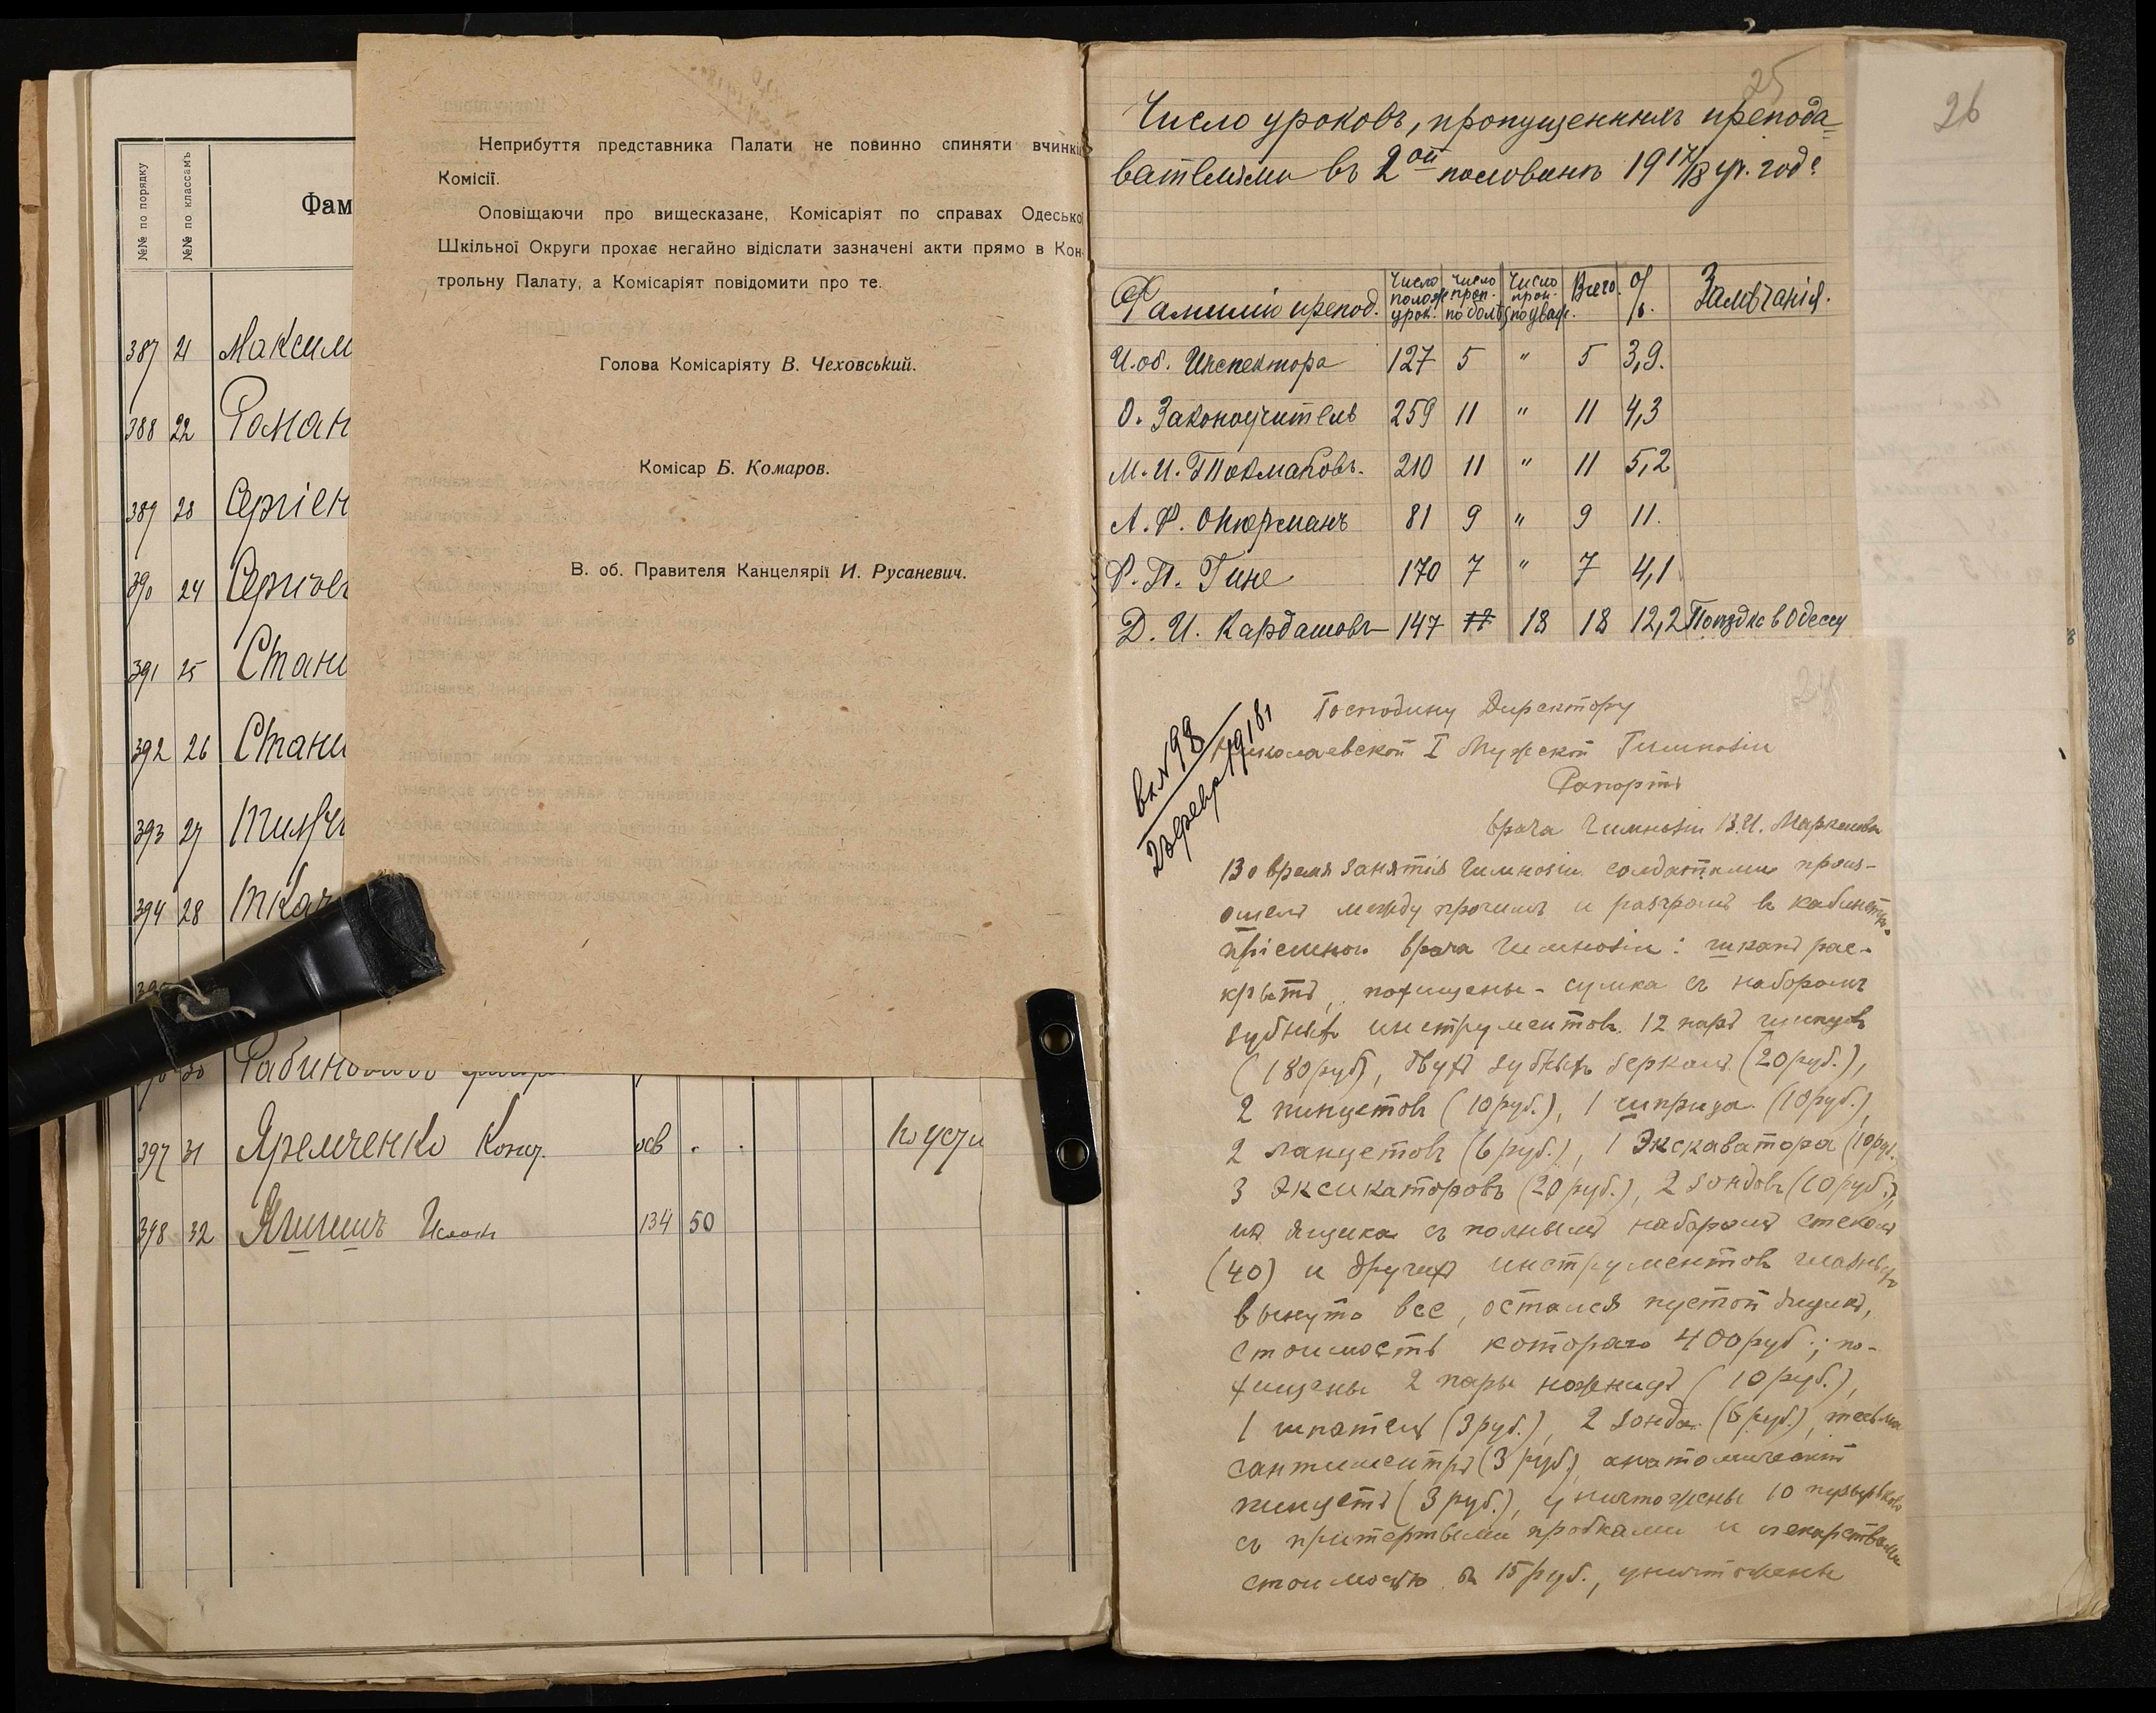 №№ по порядку
№№ по классамъ
Фам
387 21 Максим
388 22 Роман
389 23 Сергіен
390 24 Сергѣев
391 25 Стани
392 26 Стани
393 27
394 28 Ткач
397 31 Яремченко Конст. осв
398 32 Яшишъ 134 50
Неприбуття представника Палати не повинно спиняти вчинки
Комісії.
Оповіщаючи про вищесказане, Комісаріят по справах Одесько
Шкільної Округи прохає негайно відіслати зазначені акти прямо в Кон-
трольну Палату, а Комісаріят повідомити про те.
Голова Комісаріяту В. Чеховський.
Комісар Б. Комаров.
В. об. Правителя Канцелярії И. Русаневич.
25
26
Число уроковъ, пропущенныхъ препода-
вателями въ 2ой половинѣ 1917/18 уч. годѣ
Фамилію препод. Число полож. урок. Число проп. по болѣз. Число проп. по уваж. Всего. % Замѣчанія.
И. об. Инспектора 127 5 " 5 3,9.
О. Законоучитель 259 11 " 11 4,3
М. И. Токмаковъ. 210 11 " 11 5,2
А. Ф. Оккерманъ 81 9 " 9 11.
Ф. П. Гине 170 7 " 7 4,1
Д. И. Кардашовъ 147 18 18 12,2 Поѣздка в Одессу
24
Вх. №98
23 февр. 1918 г.
Господину Директору
Николаевской I Мужской Гимназіи
Рапортъ
врача гимназіи В. И.
Во время занятія гимназіи солдатами произ-
ошелъ между прочимъ и разгромъ въ кабинетѣ
пріемной врача гимназіи: шкапъ рас-
крытъ, похищены - сумка съ наборомъ
зубныхъ инструментовъ 12 паръ щипцовъ
(180 руб), двухъ зубныхъ зеркалъ (20 руб.),
2 пинцетовъ (10 руб.), 1 шприца (10 руб.),
2 ланцетовъ (6 руб.), 1 экскаватора (10 руб.
3 эксикаторовъ (20 руб.), 2 зондовъ (10 руб.),
из ящика съ полнымъ наборомъ стеколъ
(40) и другихъ инструментовъ глазныхъ
вынуто все, остался пустой ящикъ,
стоимость котораго 400 руб.; по-
хищены 2 пары ножницъ (10 руб.),
1 шпатель (3 руб.), 2 зонда (6 руб.), тесьма
сантиметръ (3 руб.) анатомический
пинцетъ (3 руб.), уничтожены 10 пузырьковъ
съ притертыми пробками и лекарствами
стоимостью въ 15 руб., уничтожены